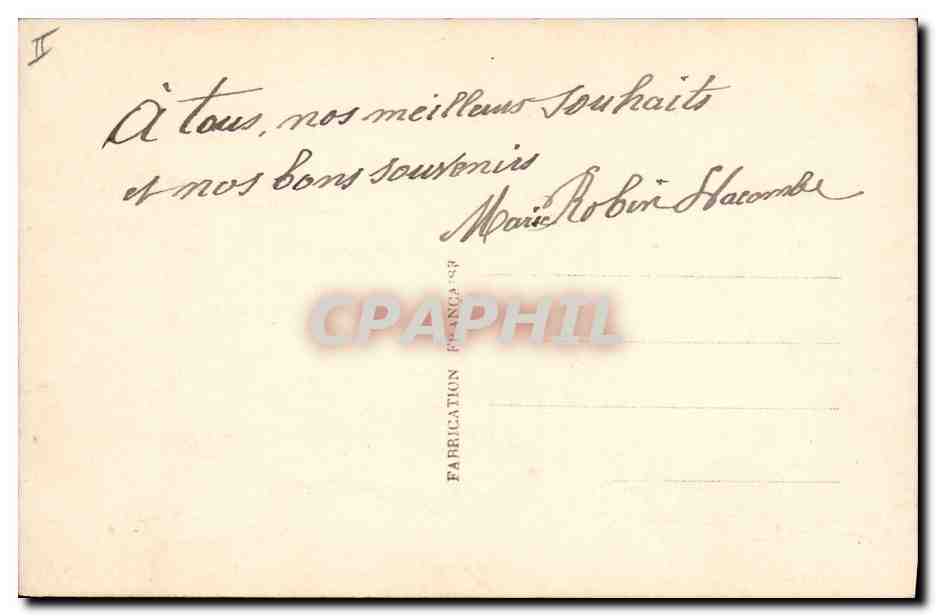 II
À tous, nos meilleurs souhaits
et nos bons souvenirs
Marie Robin Lacombe
FABRICATION FRANÇAISE
CPAPHIL